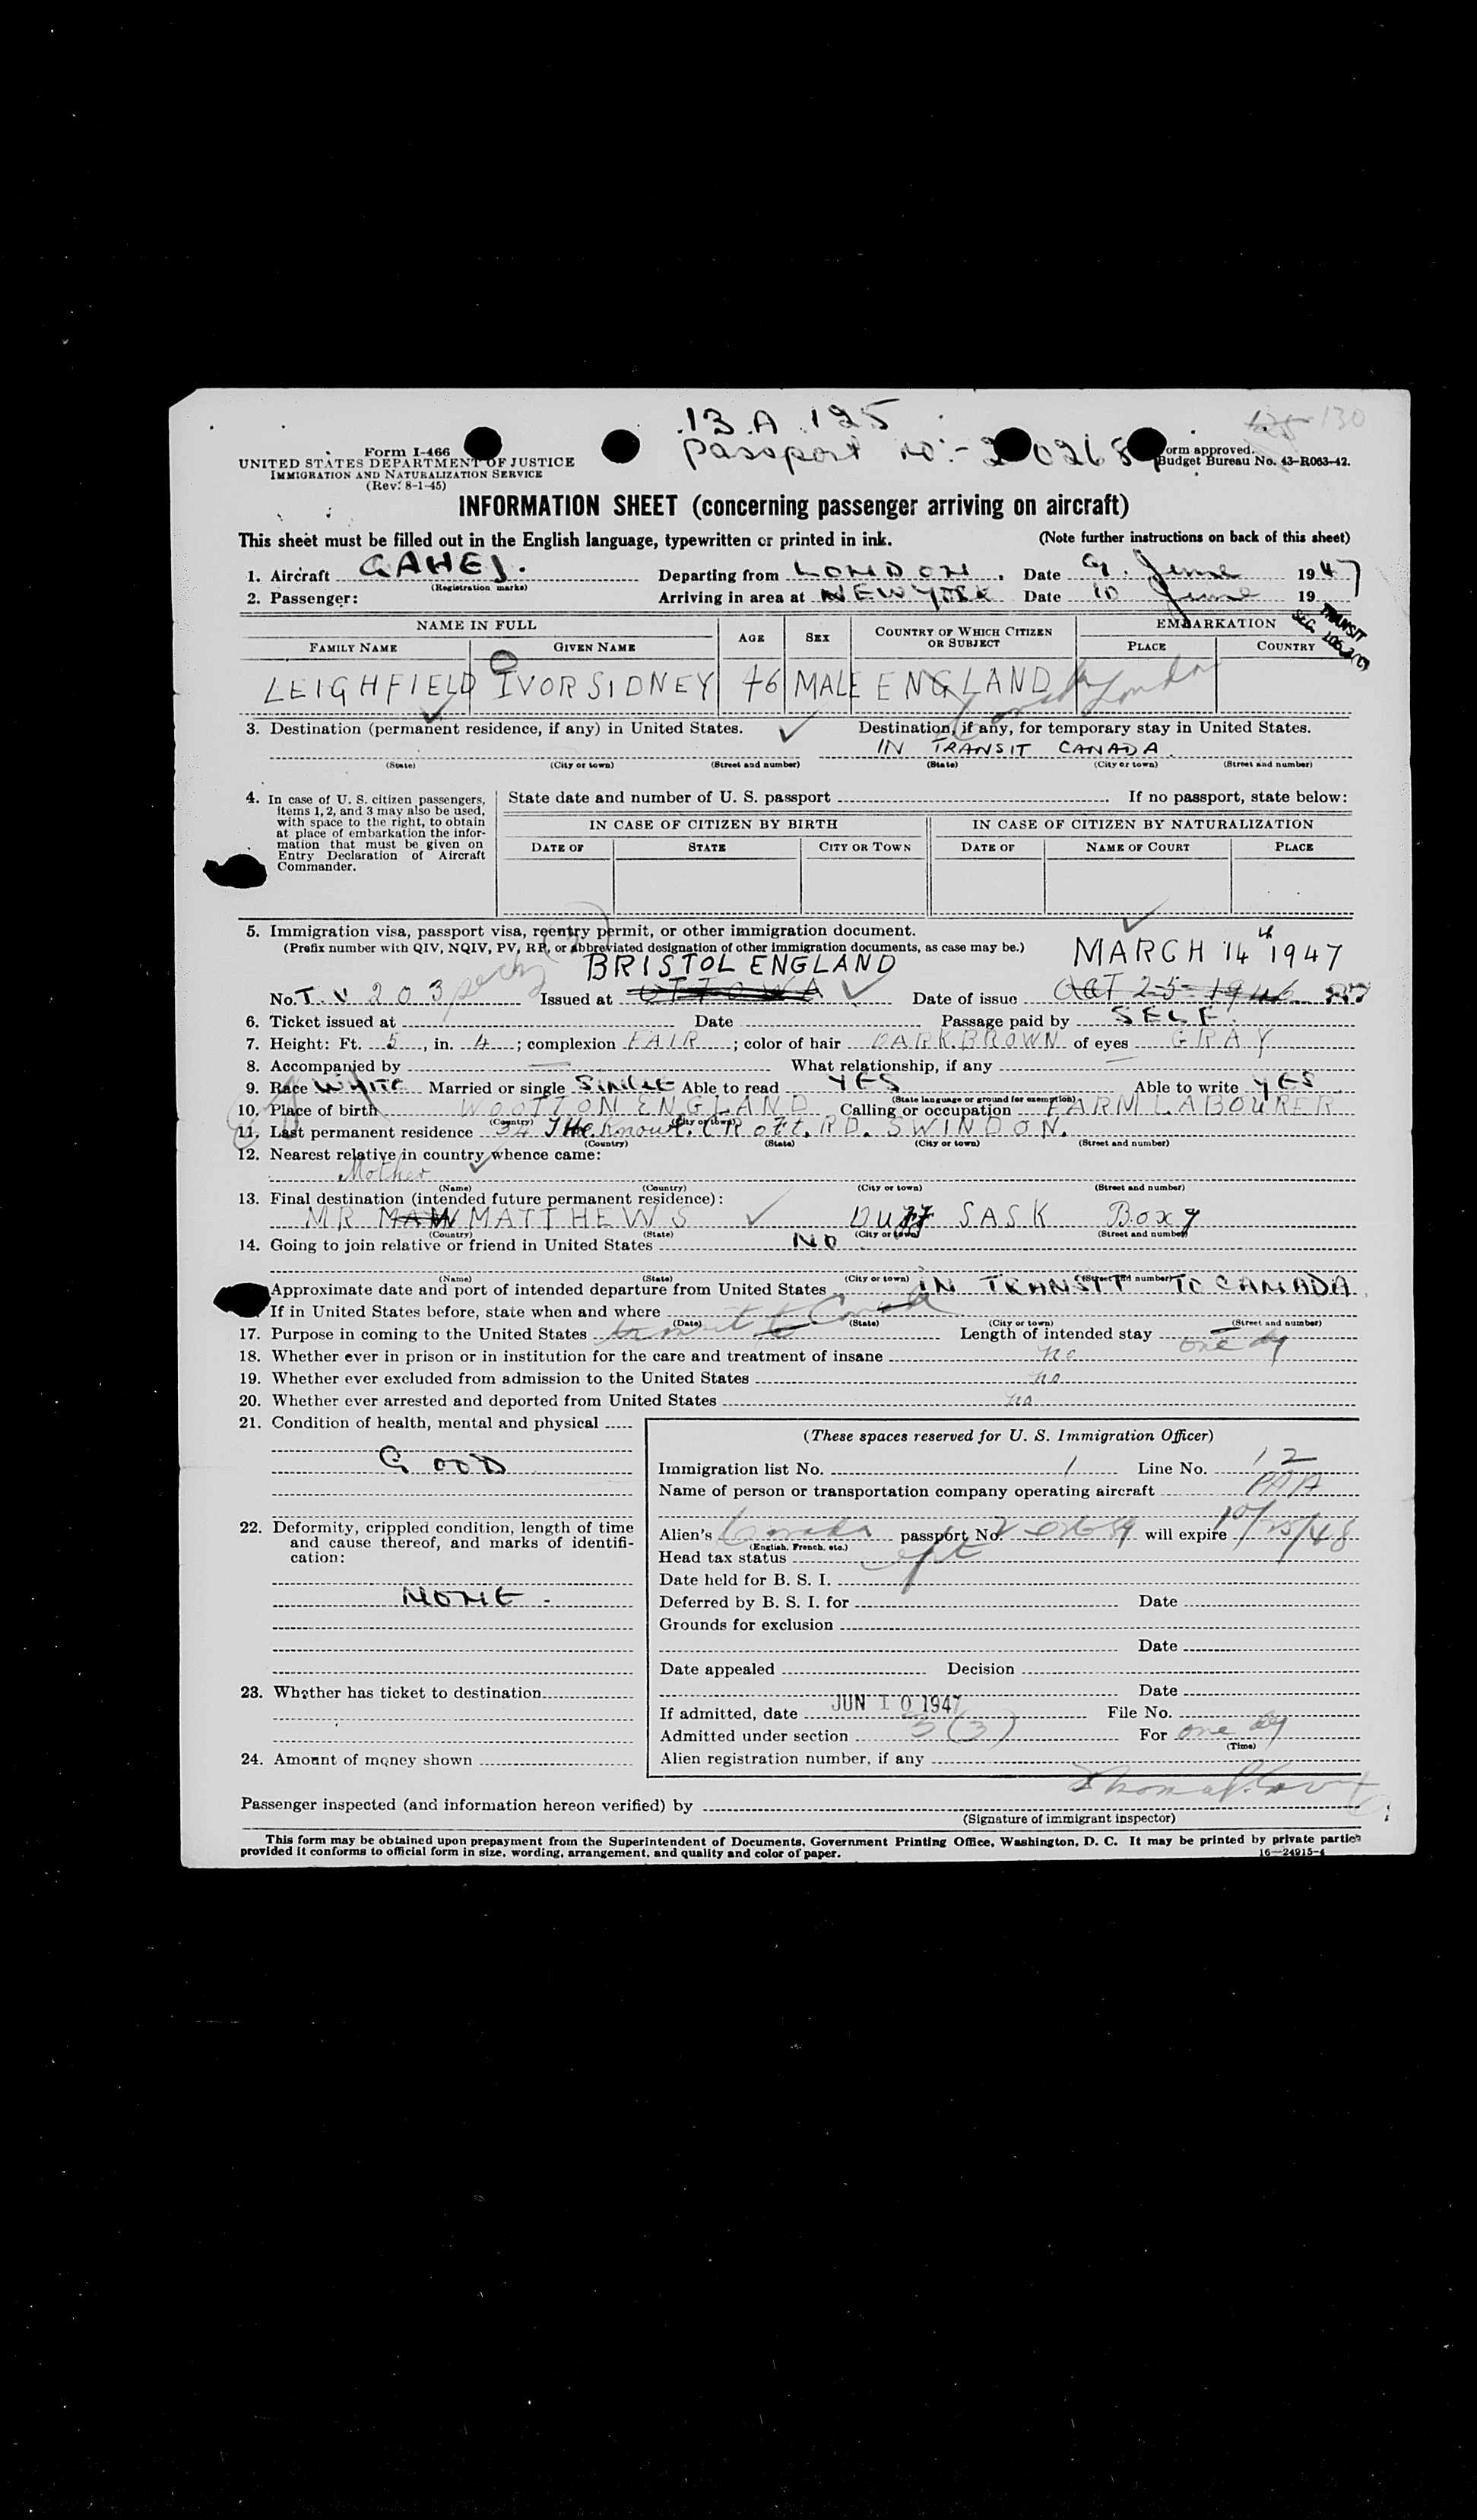 13 A 125
130
Form I-466
UNITED STATES DEPARTMENT OF JUSTICE
IMMIGRATION AND NATURALIZATION SERVICE
(Rev. 8-1-45)
Passport no:- 2 0268
Form approved.
Budget Bureau No. 43-R063-42.
INFORMATION SHEET (concerning passenger arriving on aircraft)
This sheet must be filled out in the English language, typewritten or printed in ink. (Note further instructions on back of this sheet)
1. Aircraft GAHEJ. Departing from LONDON. Date 9. June 1947
(Registration marks)
2. Passenger: Arriving in area at NEW YORK Date 10 June 19
TRANSIT
NAME IN FULL AGE SEX COUNTRY OF WHICH CITIZEN OR SUBJECT EMBARKATION
FAMILY NAME GIVEN NAME PLACE COUNTRY
LEIGHFIELD IVOR SIDNEY 46 MALE ENGLAND London
3. Destination (permanent residence, if any) in United States. Destination, if any, for temporary stay in United States.
IN TRANSIT CANADA.
(State) (City or town) (Street and number) (State) (City or town) (Street and number)
4. In case of U. S. citizen passengers, items 1, 2, and 3 may also be used, with space to the right, to obtain at place of embarkation the information that must be given on Entry Declaration of Aircraft Commander.
State date and number of U. S. passport If no passport, state below:
IN CASE OF CITIZEN BY BIRTH IN CASE OF CITIZEN BY NATURALIZATION
DATE OF STATE CITY OR TOWN DATE OF NAME OF COURT PLACE
5. Immigration visa, passport visa, reentry permit, or other immigration document.
(Prefix number with QIV, NQIV, PV, RP, or abbreviated designation of other immigration documents, as case may be.)
BRISTOL ENGLAND MARCH 14th 1947
No. T. V 203 Issued at OTTOWA Date of issue OCT 25 1946
6. Ticket issued at Date Passage paid by SELF.
7. Height: Ft. 5, in. 4; complexion FAIR; color of hair DARK BROWN of eyes GRAY
8. Accompanied by — What relationship, if any —
9. Race WHITE Married or single SINGLE Able to read YES Able to write YES
(State language or ground for exemption)
10. Place of birth WOOTTON ENGLAND Calling or occupation FARM LABOURER
(Country) (City or town)
11. Last permanent residence 34 THE Knowl. CROft. RD. SWINDON.
(Country) (State) (City or town) (Street and number)
12. Nearest relative in country whence came:
Mother
(Name) (Country) (City or town) (Street and number)
13. Final destination (intended future permanent residence):
MR MATTHEWS Duff SASK Box 9
(Country) (State) (City or town) (Street and number)
14. Going to join relative or friend in United States NO
(Name) (State) (City or town) (Street and number)
Approximate date and port of intended departure from United States IN TRANSIT TO CANADA
If in United States before, state when and where
(Date) (State) (City or town) (Street and number)
17. Purpose in coming to the United States transit to Canada Length of intended stay one dy
18. Whether ever in prison or in institution for the care and treatment of insane no
19. Whether ever excluded from admission to the United States no
20. Whether ever arrested and deported from United States no
21. Condition of health, mental and physical
GOOD
22. Deformity, crippled condition, length of time and cause thereof, and marks of identification:
NONE -
23. Whether has ticket to destination
24. Amount of money shown
(These spaces reserved for U. S. Immigration Officer)
Immigration list No. 1 Line No. 12
Name of person or transportation company operating aircraft PAA
Alien's Canada passport No. 2 02689 will expire 10/25/48
(English, French, etc.)
Head tax status
Date held for B. S. I.
Deferred by B. S. I. for Date
Grounds for exclusion
Date
Date appealed Decision
Date
If admitted, date JUN 10 1947 File No.
Admitted under section 3(3) For one dy
(Time)
Alien registration number, if any
Passenger inspected (and information hereon verified) by
(Signature of immigrant inspector)
This form may be obtained upon prepayment from the Superintendent of Documents, Government Printing Office, Washington, D. C. It may be printed by private parties
provided it conforms to official form in size, wording, arrangement, and quality and color of paper. 16—24915-4